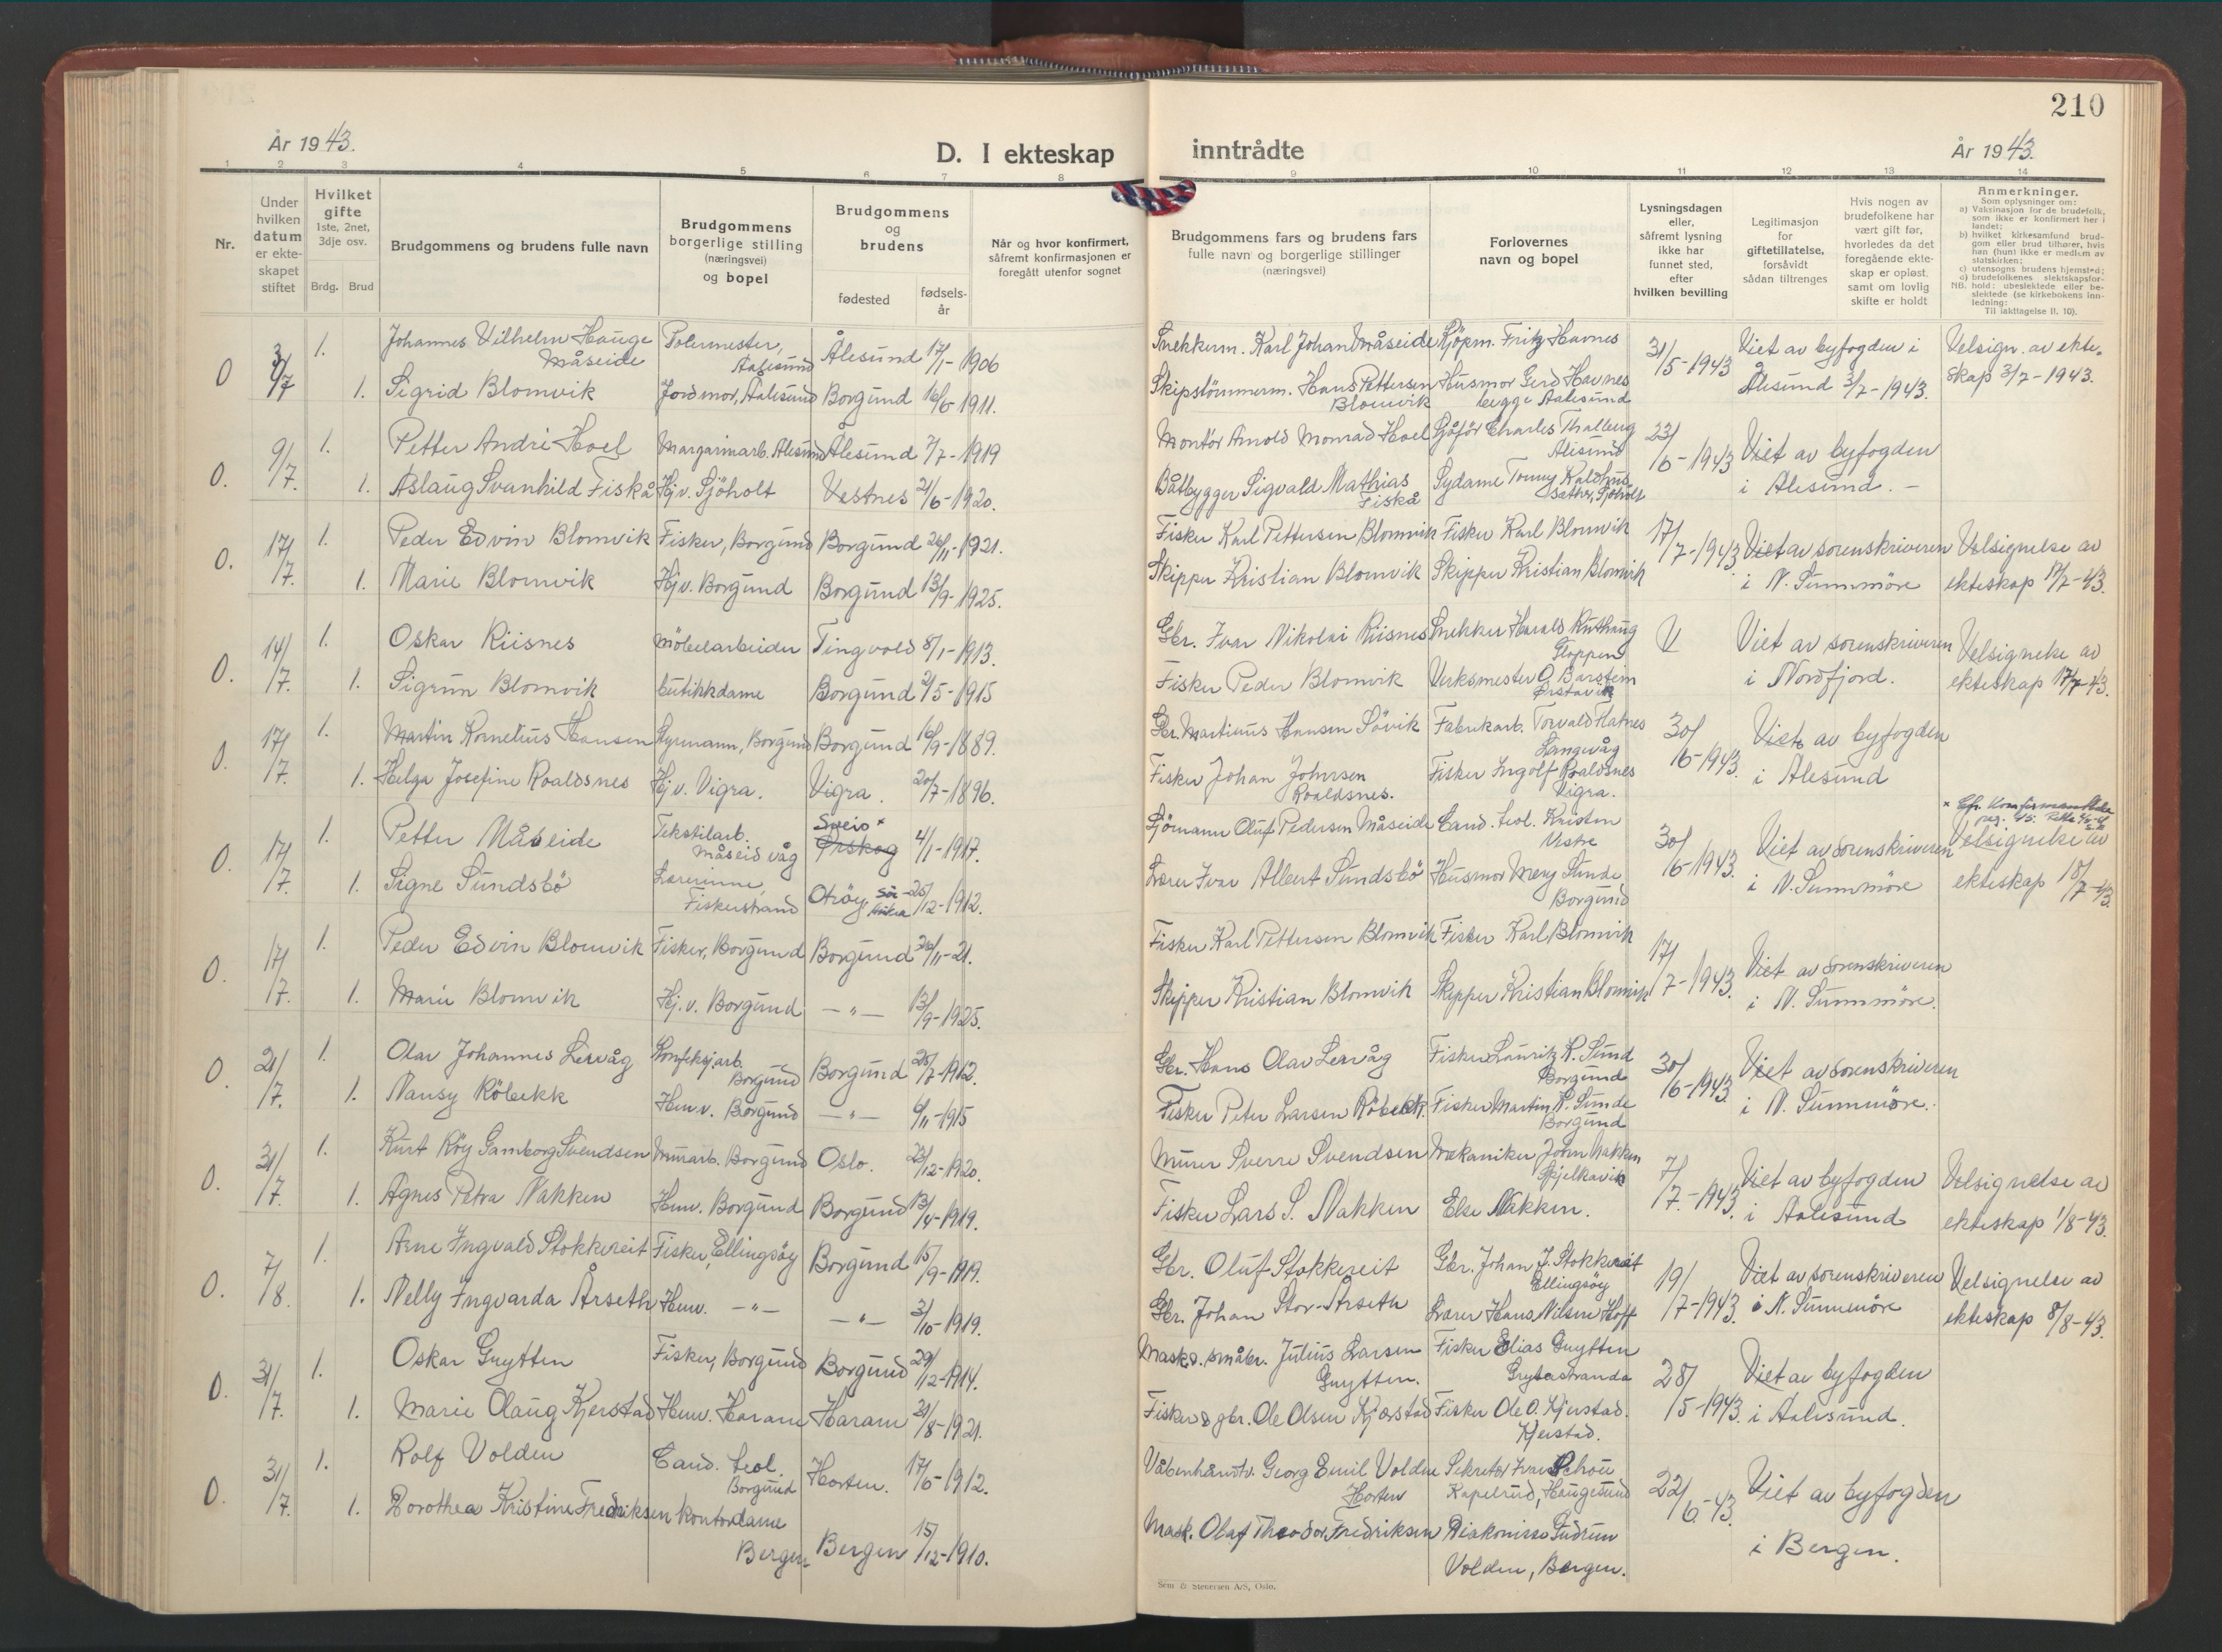 210
År 1943.
D. I ekteskap
inntrådte
År 1943.
1 2 3 4 5 6 7 8 9 10 11 12 13 14
Nr.
Under hvilken datum er ekteskapet stiftet
Hvilket gifte 1ste, 2net, 3dje osv.
Brdg. Brud
Brudgommens og brudens fulle navn
Brudgommens borgerlige stilling (næringsvei) og bopel
Brudgommens og brudens
fødested
fødsels-år
Når og hvor konfirmert, såfremt konfirmasjonen er foregått utenfor sognet
Brudgommens fars og brudens fars fulle navn og borgerlige stillinger (næringsvei)
Forlovernes navn og bopel
Lysningsdagen eller, såfremt lysning ikke har funnet sted, efter hvilken bevilling
Legitimasjon for giftetillatelse, forsåvidt sådan tiltrenges
Hvis nogen av brudefolkene har vært gift før, hvorledes da det foregående ekteskap er opløst, samt om lovlig skifte er holdt
Anmerkninger.
Som oplysninger om:
a) Vaksinasjon for de brudefolk, som ikke er konfirmert her i landet;
b) hvilket kirkesamfund brudgom eller brud tilhører, hvis han (hun) ikke er medlem av statskirken;
c) utensogns brudens hjemsted;
d) brudefolkenes slektskapsforhold: ubeslektede eller beslektede (se kirkebokens innledning: Til iakttagelse II. 10).
NB.
O 3/7 1. Johannes Vilhelm Hauge Måseide Polermester, Aalesund Ålesund 17/1-1906 Snekkerm. Karl Johan Måseide Kjöpm. Fritz Havnes 31/5-1943 Viet av byfogden i Ålesund 3/7-1943. Velsign. av ekteskap 3/7-1943.
1. Sigrid Blomvik Jordmor, Aalesund Borgund 16/6 1911. Skipstömmerm. Hans Pettersen Blomvik Husmor Gerd Havnes begge Aalesund
O. 9/7. 1. Petter André Hoel Margarinarb. Ålesund Ålesund 7/7-1919 Montör Arnold Monrad Hoel Sjåför Charles Thalberg Ålesund 23/6-1943 Viet av byfogden i Ålesund. -
1. Aslaug Svanhild Fiskå Hj.v. Sjöholt Vestnes 21/6-1920. Båtbygger Sigvald Mathias Fiskå Sydame Tonny Kaldhussæther, Sjöholt
O. 17/7. 1. Peder Edvin Blomvik Fisker, Borgund Borgund 26/11-1921. Fisker Karl Pettersen Blomvik Fisker Karl Blomvik 17/7-1943 Viet av sorenskriveren i N. Sunnmöre Velsignelse av ekteskap 17/7-43.
1. Marie Blomvik Hj.v. Borgund Borgund 13/9-1925. Skipper Kristian Blomvik Skipper Kristian Blomvik
O. 14/7. 1. Oskar Riisnes Möbelarbeider Tingvold 8/1-1913. Gbr. Ivar Nikolai Riisnes Snekker Harald Ruthaug Gloppen Viet av sorenskriveren i Nordfjord. Velsignelse av ekteskap 17/7-43.
1. Sigrun Blomvik butikkdame Borgund 2/5-1915 Fisker Peder Blomvik Verksmester O. Barstein Ørstavik
O. 17/7. 1. Martin Kornelius Hansen Styrmann, Borgund Borgund 16/9-1889. Gbr. Martinus Hansen Sövik Fabrikarb. Torvald Flatnes Langevåg 30/6-1943. Viet av byfogden i Ålesund
1. Helga Josefine Roaldsnes Hj.v. Vigra. Vigra. 20/7-1896. Fisker Johan Johnsen Roaldsnes. Fisker Ingolf Roaldsnes Vigra.
O. 17/7. 1. Petter Måseide Tekstilarb. Måseidvåg Sveio × Ørskog 4/1-1917. Sjömann Oluf Pedersen Måseide Cand. teol. Kristen Vistre 30/6-1943. Viet av sorenskriveren i N. Sunnmöre Velsignelse av ekteskap 18/7-43.
1. Signe Sundsbö Lærerinne, Fiskerstrand Otröy, 25/12-1912. Lærer Ivar Albert Sundsbö Husmor Mery Sunde Borgund
O. 17/7. 1. Peder Edvin Blomvik Fisker, Borgund Borgund 26/11-21. Fisker Karl Pettersen Blomvik Fisker Karl Blomvik 17/7-1943. Viet av sorenskriveren i N. Sunnmöre.
1. Marie Blomvik Hj.v. Borgund -"- 13/9-1925. Skipper Kristian Blomvik Skipper Kristian Blomvik
O. 21/7. 1. Olav Johannes Lervåg Konfeksj.arb. Borgund Borgund 25/7-1912. Gbr. Hans Olav Lervåg Fisker Lauritz K. Sund Borgund 30/6-1943 Viet av sorenskriveren i N. Sunnmöre.
1. Nansy Röbekk Hmv. Borgund -"- 6/11-1915 Fisker Peter Larsen Röbekk. Fisker Martin K. Sunde Borgund
O. 31/7. 1. Kurt Röy Gamborg Svendsen Murarb. Borgund Oslo. 23/12-1920. Murer Sverre Svendsen Mekaniker John Nakken Spjelkavik 7/7.-1943. Viet av byfogden i Aalesund Velsignelse av ekteskap 1/8-43.
1. Agnes Petra Nakken Hmv. Borgund Borgund 13/4-1919. Fisker Lars S. Nakken Else Nakken.
O. 7/8. 1. Arne Ingvald Stokkereit Fisker, Ellingsöy Borgund 15/9-1919. Gbr. Oluf Stokkereit Gbr. Johan J. Stokkereit Ellingsöy 19/7-1943. Viet av sorenskriveren i N. Sunnmöre Velsignelse av ekteskap 8/8-43.
1. Nelly Ingvarda Årseth Hmv. -"- -"- 3/10-1919. Gbr. Johan Stor-Årseth Lærer Hans Nilsen Hoff
O. 31/7. 1. Oskar Gnytten Fisker, Borgund Borgund 29/12-1914. Mask. & småbr. Julius Larsen Gnytten. Fisker Elias Gnytten Grytastranda 28/5-1943. Viet av byfogden i Aalesund.
1. Marie Olaug Kjerstad Hmv. Haram Haram 21/8-1921. Fisker & gbr. Ole Olsen Kjærstad Fisker Ole O. Kjerstad. Kjerstad.
O. 31/7. 1. Rolf Volden Cand. teol. Borgund Horten. 17/6-1912. Våbenhåndv. Georg Emil Volden Horten Sekretær Ivar Schou Kapelrud, Haugesund 22/6-43. Viet av byfogden i Bergen.
1. Dorothea Kristine Fredriksen Kontordame Bergen Bergen 15/12-1910. Mask. Olaf Theodor Fredriksen Diakonisse Gudrun Volden, Bergen.
Sem & Stenersen A/S, Oslo.